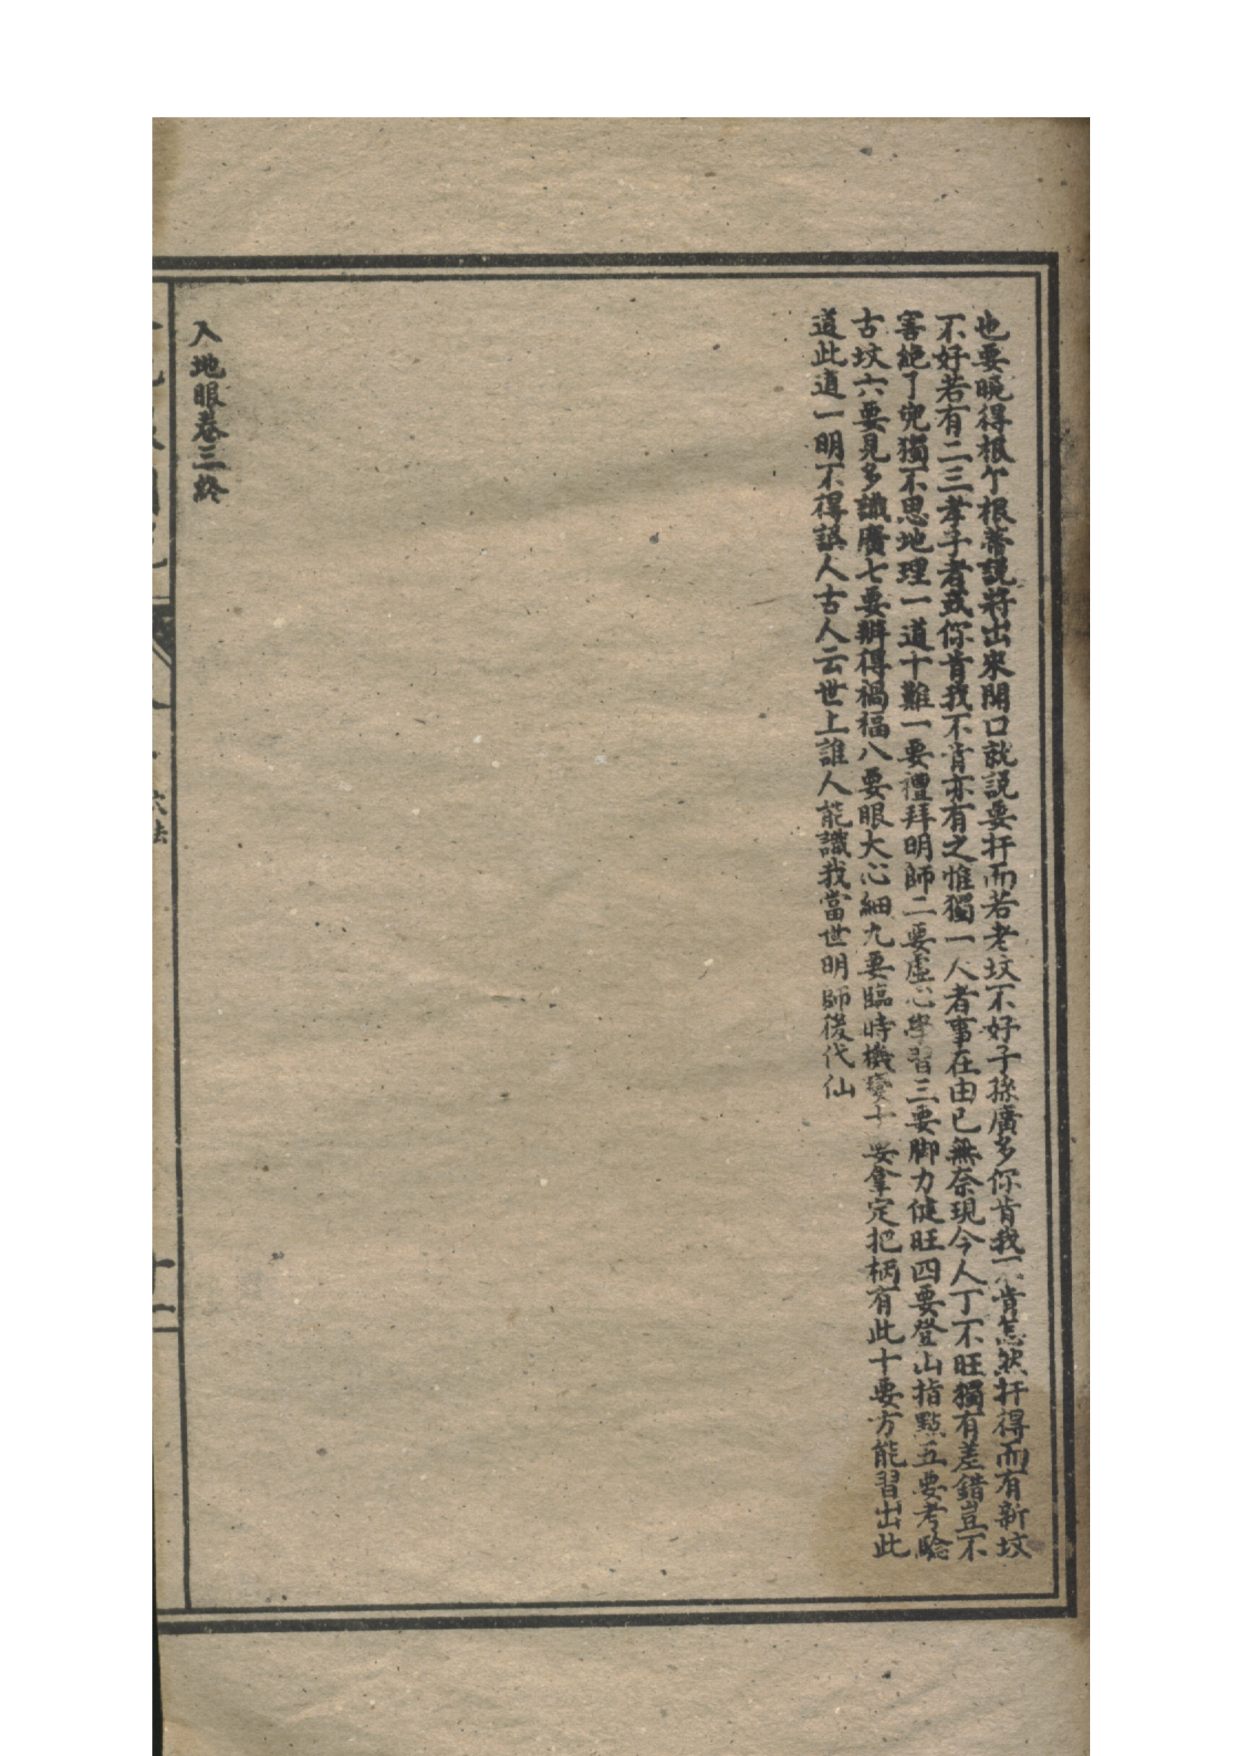 也要曉得根个根蒂説將出來開口就説要扦而若老坟不好子孫廣多你肯我不肯怎然扦得而有新坟
不好若有二三孝子者或你肯我不肯亦有之惟獨一人者事在由已無奈現今人丁不旺獨有差錯豈不
害絶了兜獨不思地理一道十難一要禮拜明師二要虛心學習三要脚力健旺四要登山指點五要考驗
古坟六要見多識廣七要辨得禍福八要眼大心細九要臨時機變十要拿定把柄有此十要方能習出此
道此道一明不得誤人古人云世上誰人能識我當世明師後代仙
入地眼卷三終
穴法